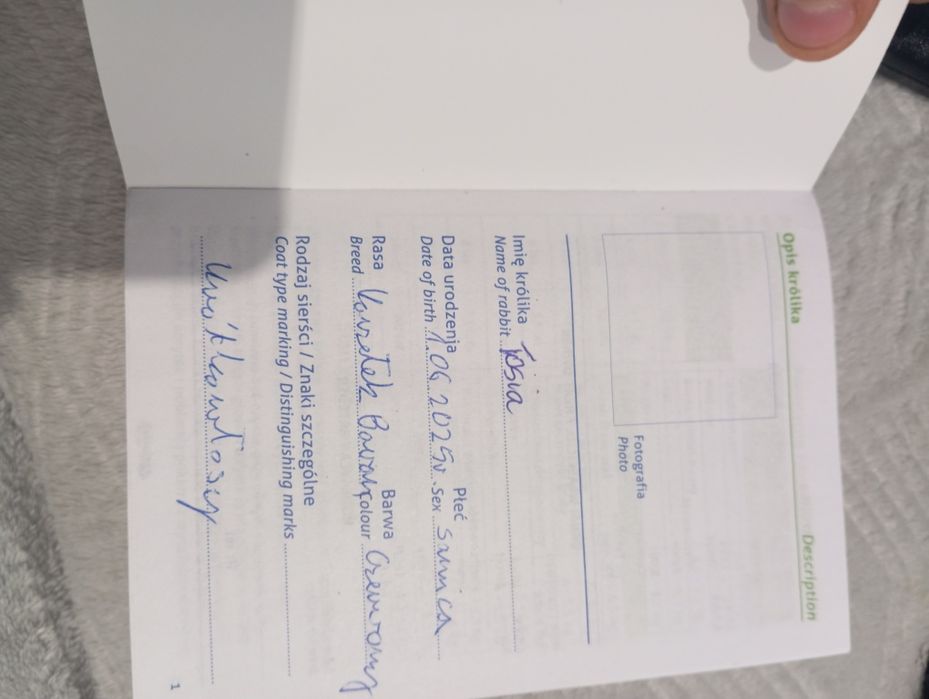 Opis królika Description
Fotografia
Photo
Imię królika
Name of rabbit Tosia
Data urodzenia Płeć
Date of birth 1.06 2025r. Sex Samica
Rasa Barwa
Breed Karzełek Baran Colour Czerwony
Rodzaj sierści / Znaki szczególne
Coat type marking / Distinguishing marks
Krótkowłosy
1